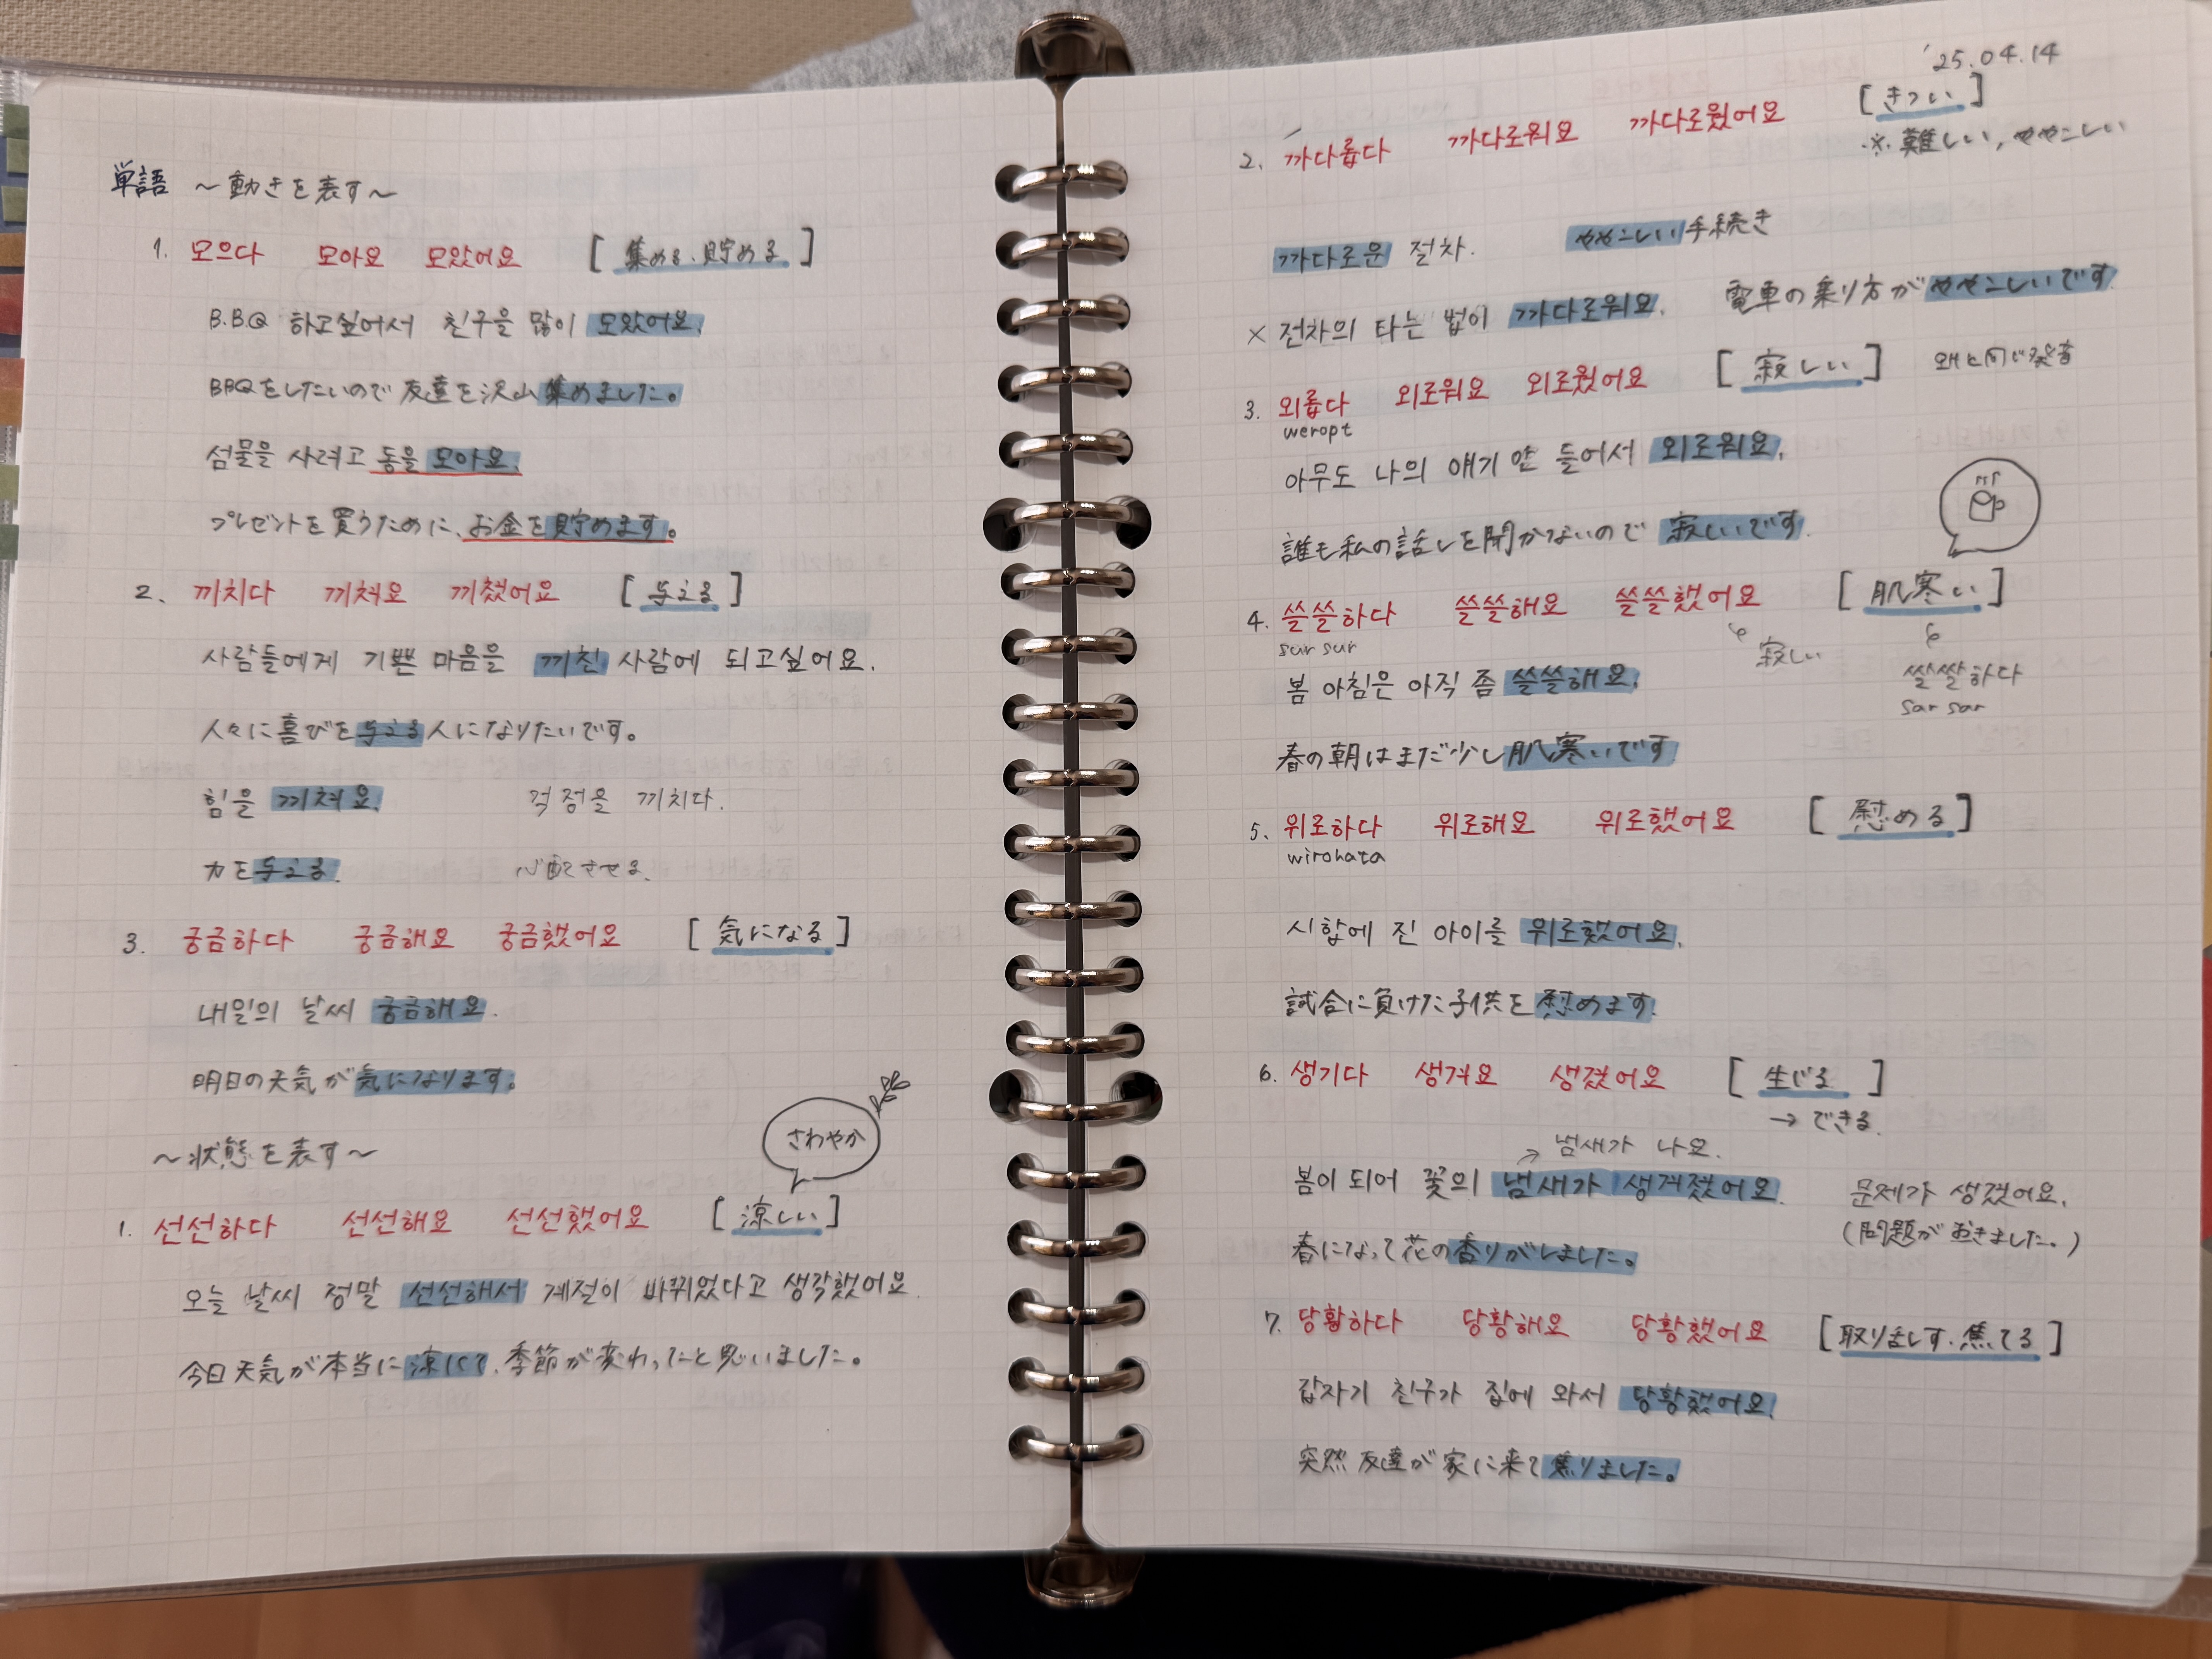 単語 ～動きを表す～
1. 모으다 모아요 모았어요 [集める、貯める]
B.B.Q 하고싶어서 친구을 많이 모았어요.
BBQをしたいので友達を沢山集めました。
섬물을 사려고 동을 모아요.
プレゼントを買うために、お金を貯めます。
2、 끼치다 끼쳐요 끼쳤어요 [与える]
사람들에게 기쁜 마음을 끼친 사람에 되고싶어요.
人々に喜びを与える人になりたいです。
힘을 끼쳐요. 걱정을 끼치다.
力を与える. 心配させる.
3. 궁금하다 궁금해요 궁금했어요 [気になる]
내일의 날씨 궁금해요.
明日の天気が気になります。
～状態を表す～
さわやか
1. 선선하다 선선해요 선선했어요 [涼しい]
오늘 날씨 정말 선선해서 계절이 바뀌었다고 생각했어요.
今日天気が本当に涼しくて、季節が変わったと思いました。
'25.04.14
2. 까다롭다 까다로워요 까다로웠어요 [きつい]
※難しい, ややこしい
까다로운 절차. ややこしい手続き
× 전차의 타는 법이 까다로워요. 電車の乗り方がややこしいです
3. 외롭다 외로워요 외로웠어요 [寂しい] 왜と同じ発音
weropt
아무도 나의 얘기 안 들어서 외로워요.
誰も私の話しを聞かないので寂しいです.
4. 쓸쓸하다 쓸쓸해요 쓸쓸했어요 [肌寒い]
sur sur 寂しい 쌀쌀하다
sar sar
봄 아침은 아직 좀 쓸쓸해요.
春の朝はまだ少し肌寒いです
5、 위로하다 위로해요 위로했어요 [慰める]
wirohata
시합에 진 아이를 위로했어요.
試合に負けた子供を慰めます.
6. 생기다 생겨요 생겼어요 [生じる]
→できる.
→ 냄새가 나요.
봄이 되어 꽃의 냄새가 생겨졌어요. 문제가 생겼어요.
春になって花の香りがしました。 (問題がおきました。)
7. 당황하다 당황해요 당황했어요 [取り乱す、焦てる]
갑자기 친구가 집에 와서 당황했어요.
突然友達が家に来て焦りました。